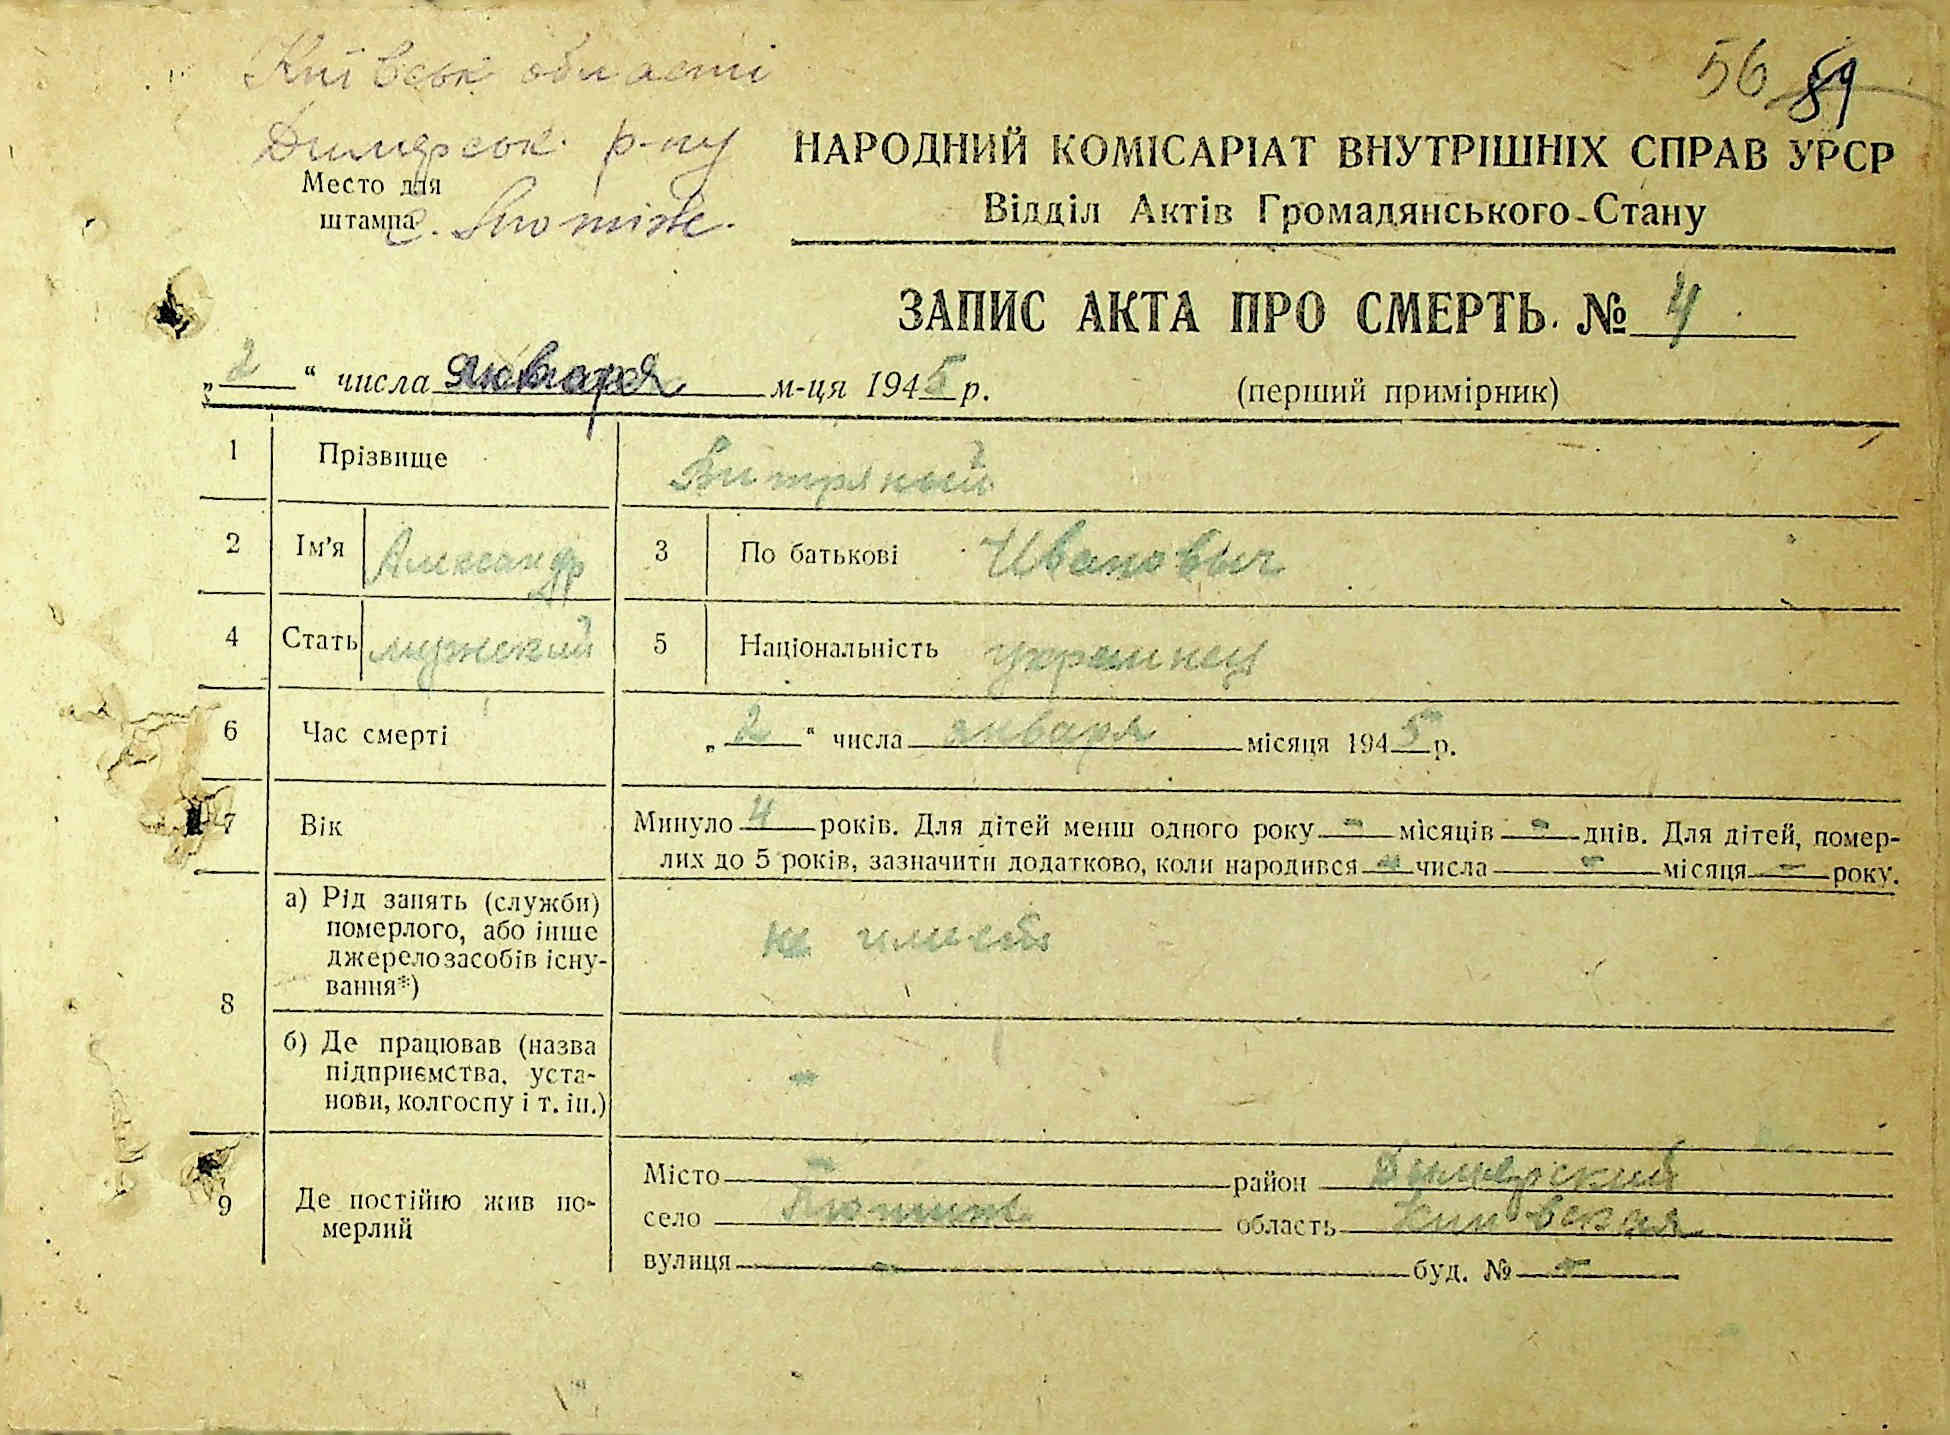 Київськ області
56 89
Димерськ. р-ну
НАРОДНИЙ КОМІСАРІАТ ВНУТРІШНІХ СПРАВ УРСР
Место для
штампа
с. Лютіж.
Відділ Актів Громадянського Стану
ЗАПИС АКТА ПРО СМЕРТЬ. № 4
„2“ числа января м-ця 1945 р.
(перший примірник)
1 Прізвище Витряный
2 Ім'я Александр 3 По батькові Иванович
4 Стать мужский 5 Національність украинец
6 Час смерті „2“ числа января місяця 1945 р.
7 Вік Минуло 4 років. Для дітей менш одного року - місяців - днів. Для дітей, помер-
лих до 5 років, зазначити додатково, коли народився - числа - місяця - року.
8 а) Рід занять (служби)
померлого, або інше
джерело засобів існу-
вання*)
не имеет
б) Де працював (назва
підприємства, уста-
нови, колгоспу і т. ін.)
-
9 Де постійно жив по-
мерлий
Місто - район Димерский
село Лютиж область Киевская
вулиця - буд. № -